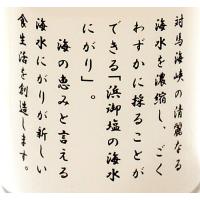 対馬海峡の清麗なる
海水を濃縮し、ごく
わずかに採ることが
できる「浜御塩の海水
にがり」。
海の恵みと言える
海水にがりが新しい
食生活を創造します。